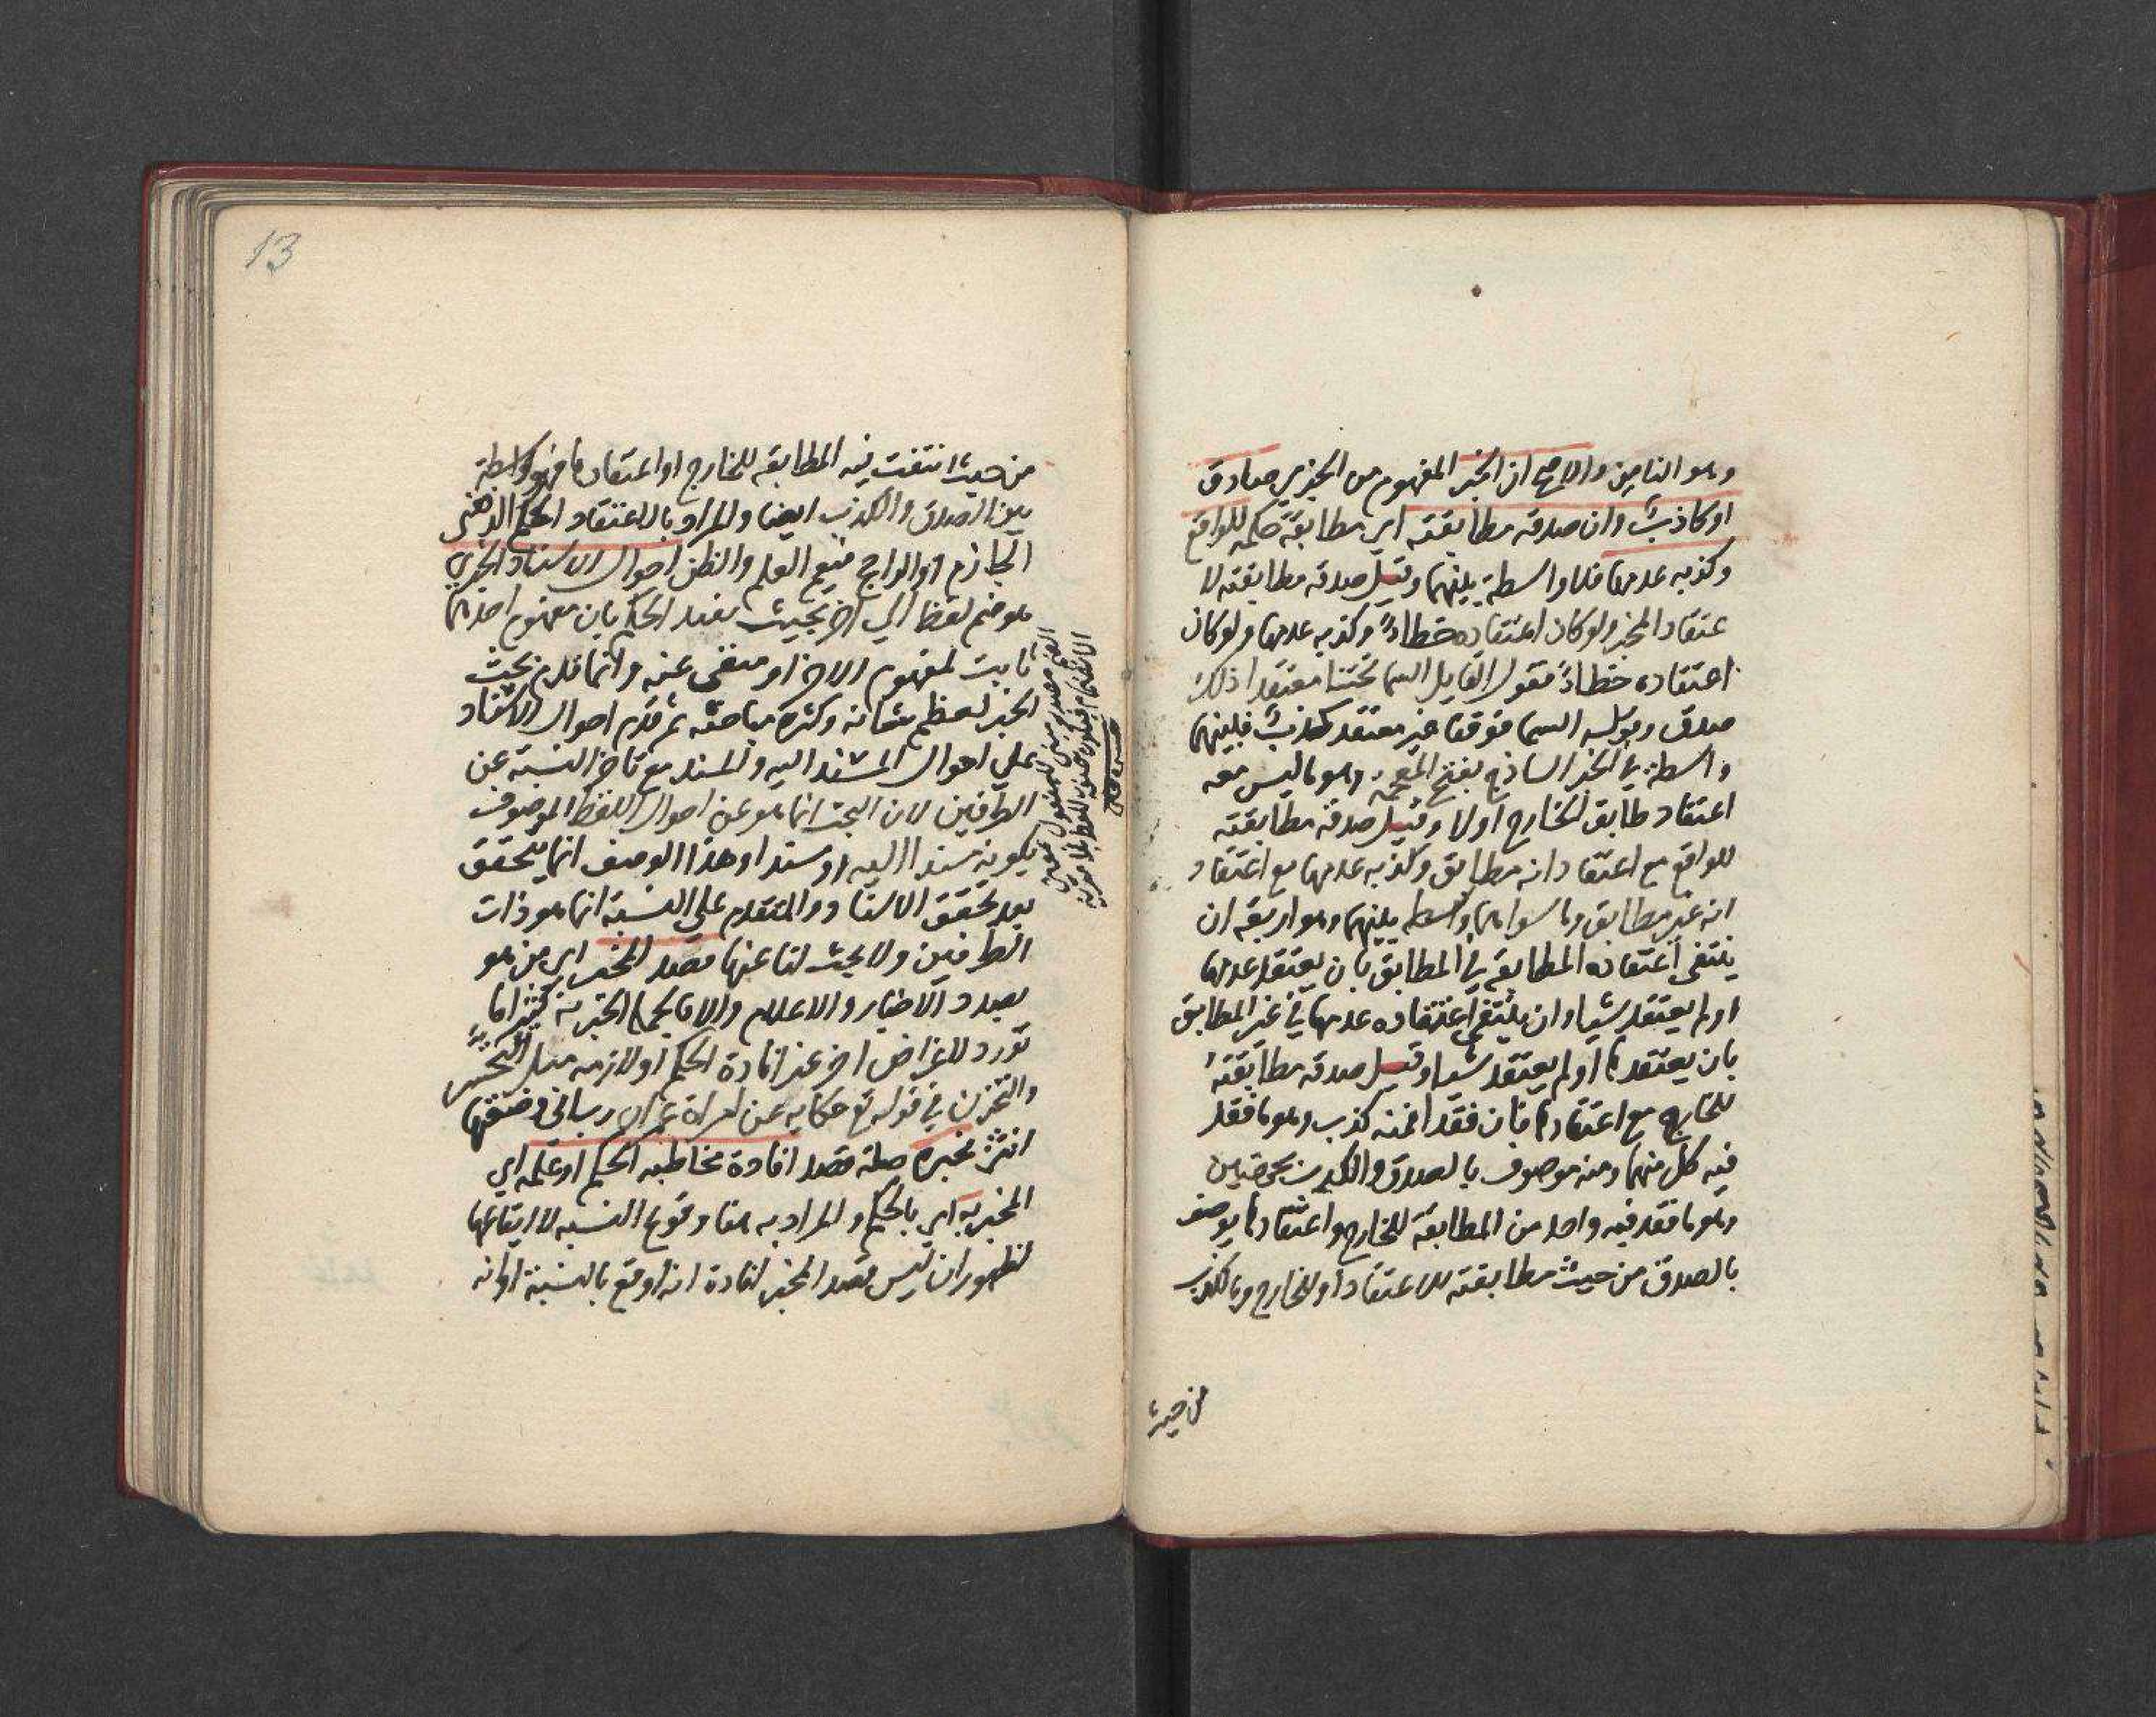 وهو الثامن والاصح ان الخبر المفهوم من الخبري صادق
او كاذب وان صدقه مطابقته اي مطابقة حكمه للواقع
وكذبه عدمها فلا واسطة بينهما وقيل صدقه مطابقته لا
عتقاد المخبر ولو كان اعتقاده خطاءً وكذبه عدمها ولو كان
اعتقاده خطاءً فقول القايل السما تحتنا معتقدا ذلك
صدق وقوله السما فوقنا غير معتقد كذب فبينهما
واسطة في الخبر الساذج بفتح المعجمة وهو ما ليس معه
اعتقاد طابق الخارج اولا وقيل صدقه مطابقته
للواقع مع اعتقاد انه مطابق وكذبه عدمها مع اعتقاد
انه غير مطابق وما سواهما واسطة بينهما وهو اربعة ان
ينتفي اعتقاده المطابقة في المطابق بان يعتقد عدمها
او لم يعتقد شيا وان ينتفي اعتقاده عدمها في غير المطابق
بان يعتقدها او لم يعتقد شيا وقيل صدقه مطابقته
للخارج مع اعتقادها فان فقدا فمنه كذب وهو ما فقد
فيه كل منهما ومنه موصوف بالصدق والكذب بجهتين
وهو ما فقد فيه واحد من المطابقة للخارج واعتقادها يوصف
بالصدق من حيث مطابقته للاعتقاد او للخارج وبالكذب
من حيث
13
من حيث انتفت فيه المطابقة للخارج او اعتقادها فهو واسطة
بين الصدق والكذب ايضا والمراد بالاعتقاد الحكم الذهني
الجازم او الراجح فيعم العلم والظن احوال الاسناد الخبري
هو ضم لفظ الي اخر بحيث يفيد الحكم بان مفهوم احدهما
ثابت لمفهوم الاخر او منفي عنه وانما قدم بحث
الخبر لعظم شانه وكثرة مباحثه ثم قدم احوال الاسناد
علي احوال المسند اليه والمسند مع تاخر النسبة عن
الطرفين لان البحث انما هو عن احوال اللفظ الموصوف
بكونه مسندا اليه او مسندا وهذا الوصف انما يتحقق
بعد تحقق الاسناد والمتقدم علي النسبة انما هو ذات
الطرفين ولا بحث لنا عنها قصد المخبر اي من هو
بصدد الاخبار والاعلام والا فالجملة الخبرية كثيرا ما
تورد لاغراض اخر غير افادة الحكم او لازمه مثل التحسر
والتحزن في قوله تع حكاية عن امراة عمران رب اني وضعتها
انثى بخبره صلة قصد افادة مخاطبه الحكم او علمه اي
المخبر به اي بالحكم والمراد به هنا وقوع النسبة لا ايقاعها
لظهور ان ليس قصد المخبر افادة انه اوقع بالنسبة او انه